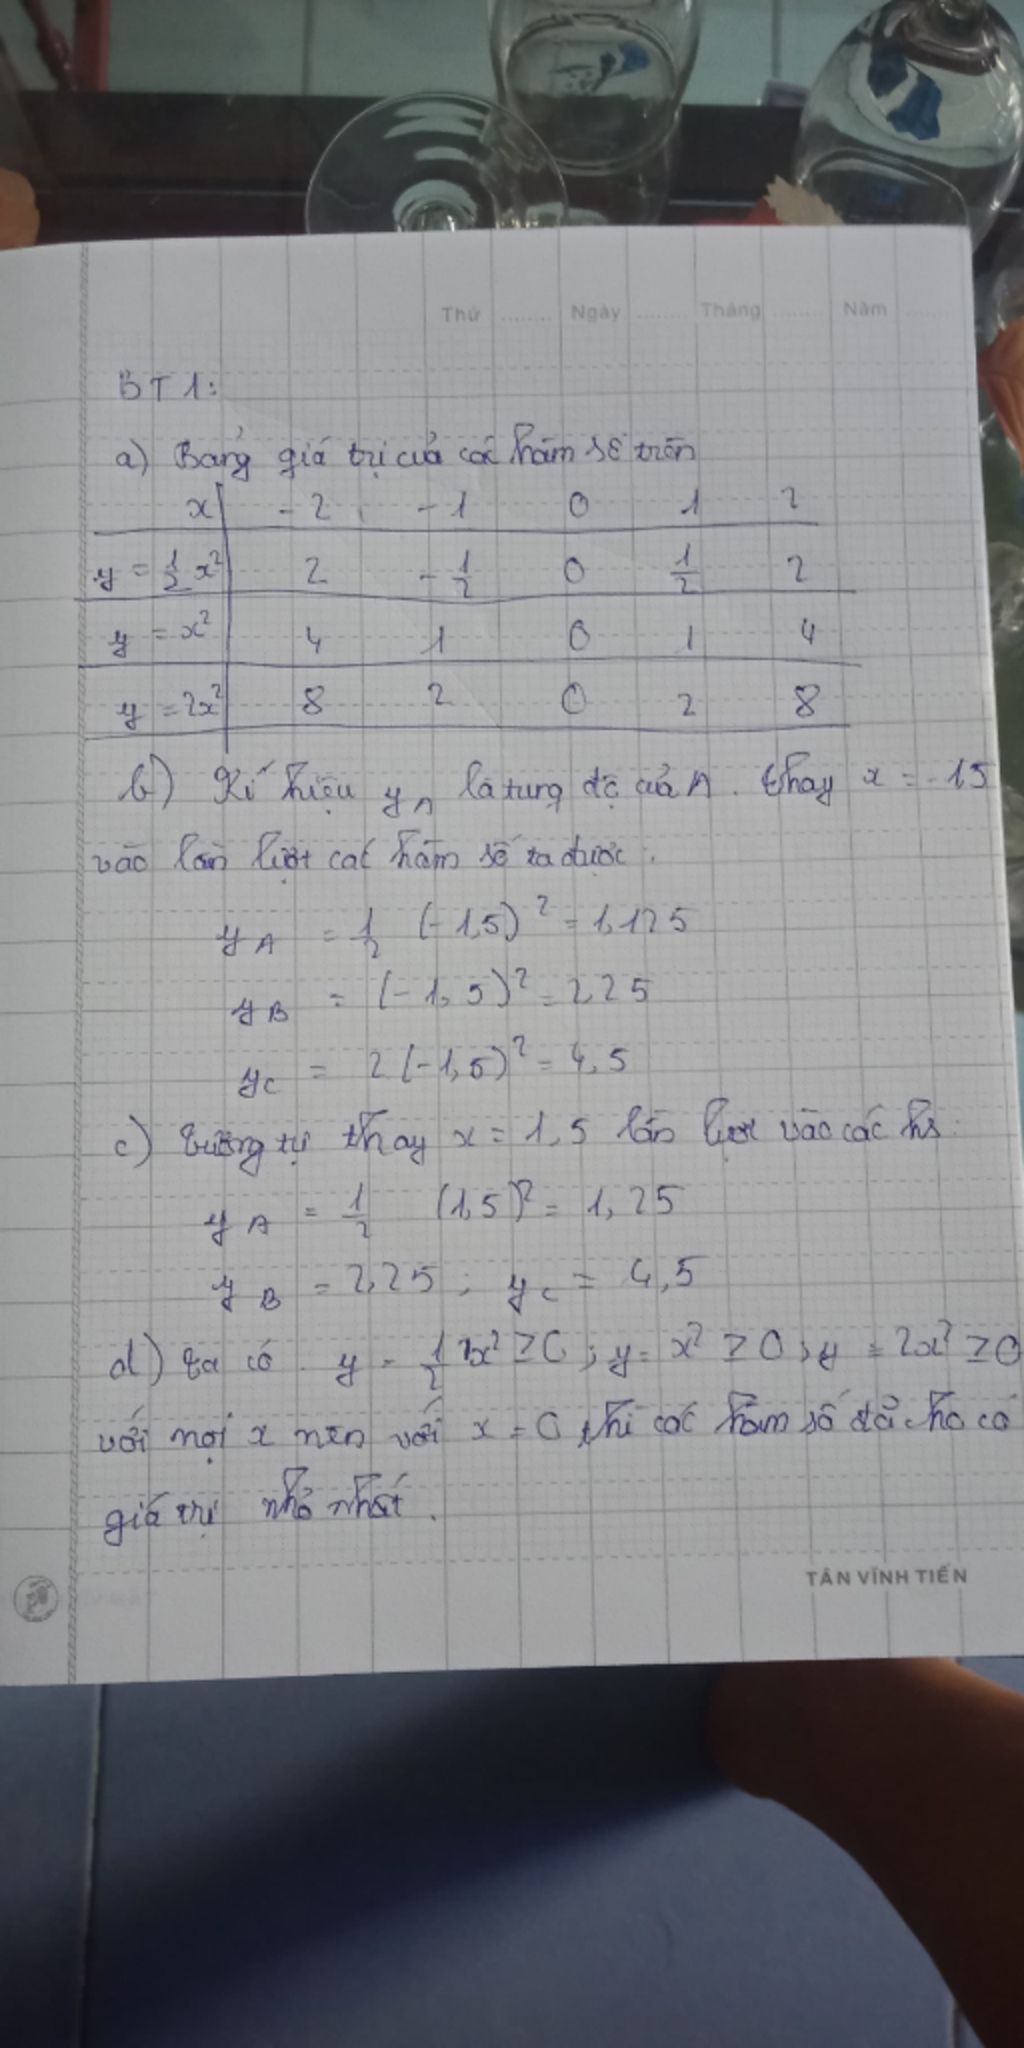 Thứ ........ Ngày ........ Tháng ........ Năm ........
BT1:
a) Bảng giá trị của các hàm số trên
x | -2 -1 0 1 2
y = 1/2 x² | 2 -1/2 0 1/2 2
y = x² | 4 1 0 1 4
y = 2x² | 8 2 0 2 8
b) Kí hiệu yA là tung độ của A. thay x = -1,5
vào lần lượt các hàm số ta được:
yA = 1/2 (-1,5)² = 1,125
yB = (-1,5)² = 2,25
yC = 2(-1,5)² = 4,5
c) tương tự thay x = 1,5 lần lượt vào các hs:
yA = 1/2 (1,5)² = 1,25
yB = 2,25 ; yC = 4,5
d) ta có y = 1/2 x² ≥ 0 ; y = x² ≥ 0 ; y = 2x² ≥ 0
với mọi x nên với x = 0 thì các hàm số đã cho có
giá trị nhỏ nhất.
TÂN VĨNH TIẾN